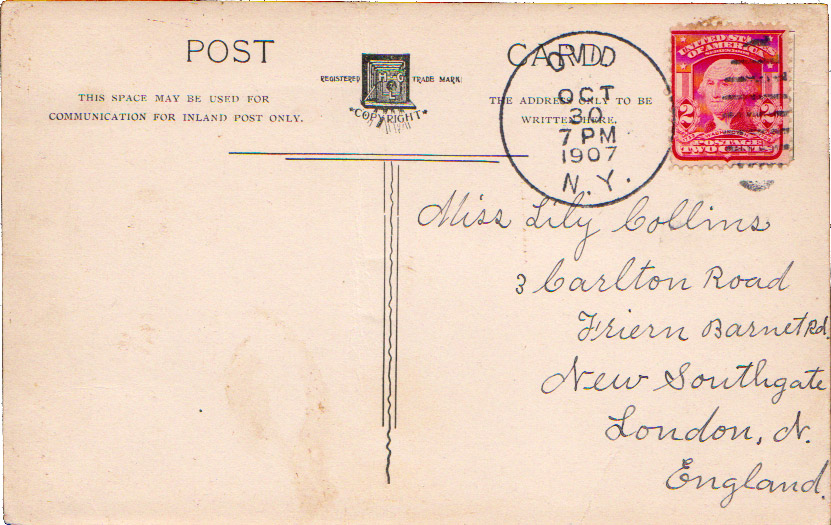 POST CARD
REGISTERED TRADE MARK
H G L
COPYRIGHT
THIS SPACE MAY BE USED FOR
COMMUNICATION FOR INLAND POST ONLY.
THE ADDRESS ONLY TO BE
WRITTEN HERE.
OVID
OCT
30
7 PM
1907
N.Y.
UNITED STATES
OF AMERICA
2 2
POSTAGE
TWO CENTS
Miss Lily Collins
3 Carlton Road
Friern Barnet Rd.
New Southgate
London, N.
England.